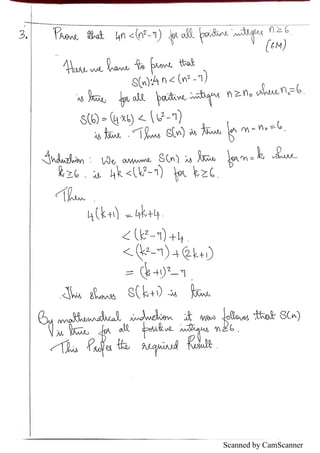 3. Prove that 4n < (n²-7) for all positive integers n≥6
(6M)
Here we have to prove that
S(n):4n < (n²-7)
is true for all positive integers n≥n₀ where n₀=6.
S(6) = (4×6) < (6²-7)
is true. Thus S(n) is true for n=n₀=6.
Induction : We assume S(n) is true for n=k where
k≥6. ie 4k<(k²-7) for k≥6.
Then
4(k+1) = 4k+4.
< (k²-7)+4.
< (k²-7)+(2k+1)
= (k+1)²-7
This shows S(k+1) is true
By mathematical induction it now follows that S(n)
is true for all positive integers n≥6.
This Proves the required Result.
Scanned by CamScanner